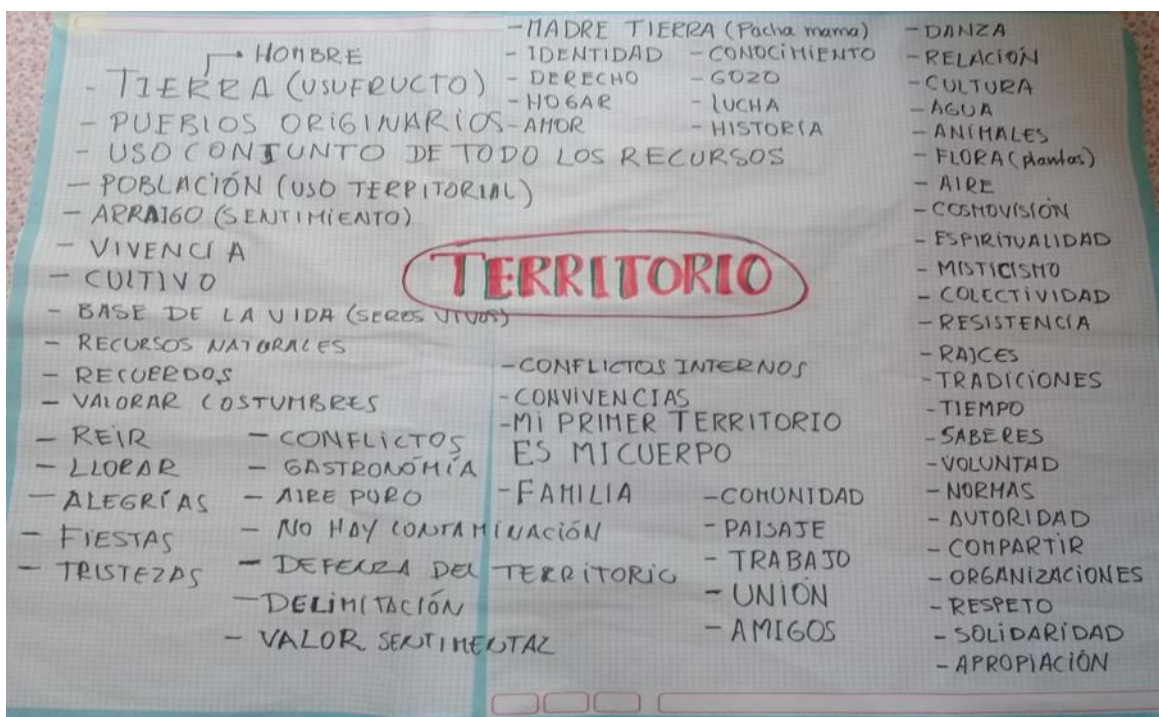 HOMBRE
- TIERRA (USUFRUCTO)
- PUEBLOS ORIGINARIOS
- USO CONJUNTO DE TODO LOS RECURSOS
- POBLACIÓN (USO TERRITORIAL)
- ARRAIGO (SENTIMIENTO)
- VIVENCIA
- CULTIVO
- BASE DE LA VIDA (SERES VIVOS)
- RECURSOS NATURALES
- RECUERDOS
- VALORAR COSTUMBRES
- REIR
- LLORAR
- ALEGRÍAS
- FIESTAS
- TRISTEZAS
- CONFLICTOS
- GASTRONOMÍA
- AIRE PURO
- NO HAY CONTAMINACIÓN
- DEFENZA DEL TERRITORIO
- DELIMITACIÓN
- VALOR SENTIMENTAL
- MADRE TIERRA (Pacha mama)
- IDENTIDAD
- DERECHO
- HOGAR
- AMOR
- CONOCIMIENTO
- GOZO
- LUCHA
- HISTORIA
TERRITORIO
- CONFLICTOS INTERNOS
- CONVIVENCIAS
- MI PRIMER TERRITORIO
ES MI CUERPO
- FAMILIA
- COMUNIDAD
- PAISAJE
- TRABAJO
- UNIÓN
- AMIGOS
- DANZA
- RELACIÓN
- CULTURA
- AGUA
- ANIMALES
- FLORA (plantas)
- AIRE
- COSMOVISIÓN
- ESPIRITUALIDAD
- MISTICISMO
- COLECTIVIDAD
- RESISTENCIA
- RAICES
- TRADICIONES
- TIEMPO
- SABERES
- VOLUNTAD
- NORMAS
- AUTORIDAD
- COMPARTIR
- ORGANIZACIONES
- RESPETO
- SOLIDARIDAD
- APROPIACIÓN